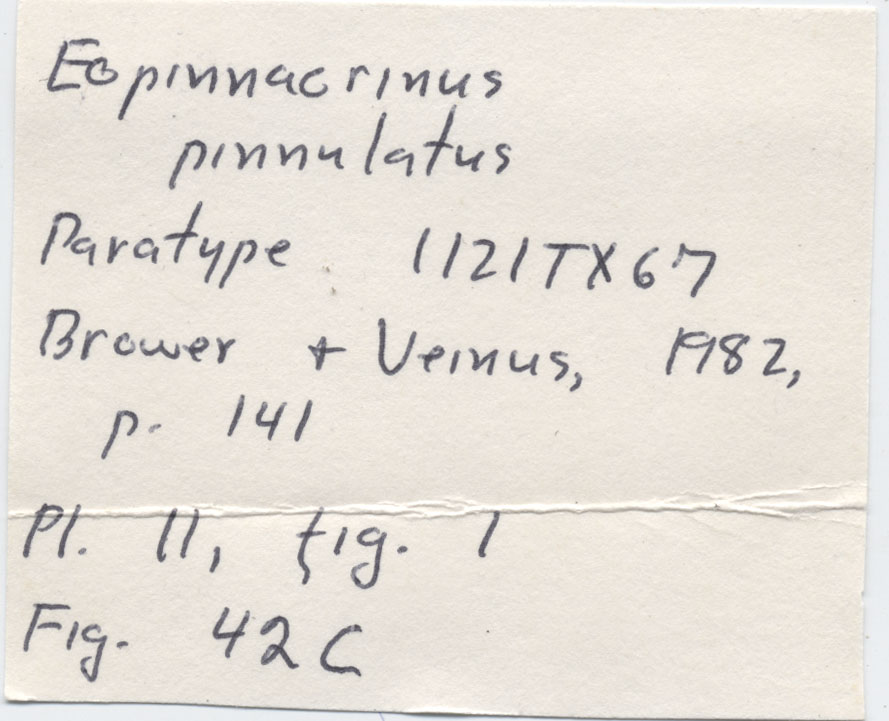 Eopinnacrinus
pinnulatus
Paratype 1121TX67
Brower + Veinus, 1982,
p. 141
Pl. 11, fig. 1
Fig. 42C